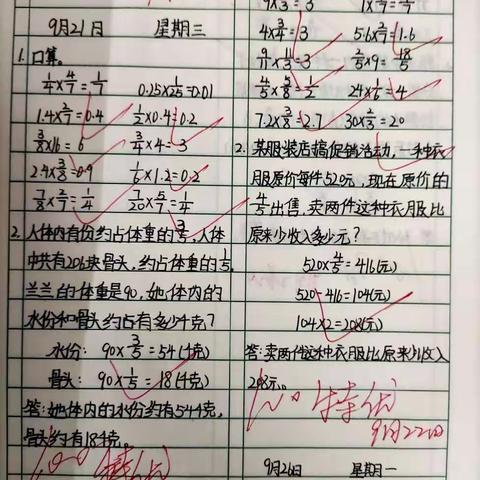 9月21日 星期三
1. 口算。
1/4×4/7=1/7 0.25×1/25=0.01
1.4×2/7=0.4 1/2×0.4=0.2
3/8×16=6 3/4×4=3
2.4×3/8=0.9 1/6×1.2=0.2
7/8×2/7=1/4 7/20×5/7=1/4
2. 人体内有份约占体重的3/5,人体
中共有206块骨头,约占体重的1/5,
兰兰的体重是90,她体内的
水份和骨头约占有多少千克?
水份: 90×3/5=54(千克)
骨头: 90×1/5=18(千克)
答:她体内的水份约有54千克,
骨头约有18千克。
100 特优
9×3=3
4×3/4=3 5.6×2/7=1.6
9/11×11/3=3 2/5×9=18/5
4/5×5/8=1/2 24×1/6=4
7.2×3/8=2.7 30×2/3=20
2. 某服装店搞促销活动,一种衣
服原价每件520元,现在原价的
4/5出售,卖两件这种衣服比
原来少收入多少元?
520×4/5=416(元)
520-416=104(元)
104×2=208(元)
答:卖两件这种衣服比原来少收入
208元。
100 特优
9月22日
9月26日 星期一